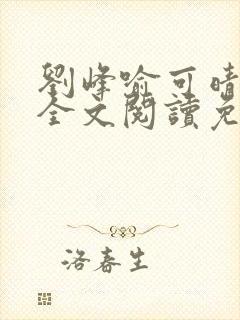 劉峰喻可晴
全文閱讀免
洛春生